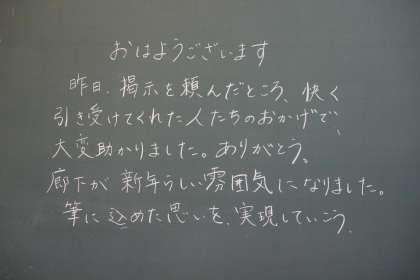 おはようございます
昨日、掲示を頼んだところ、快く
引き受けてくれた人たちのおかげで、
大変助かりました。ありがとう。
廊下が新年らしい雰囲気になりました。
筆に込めた思いを、実現していこう。